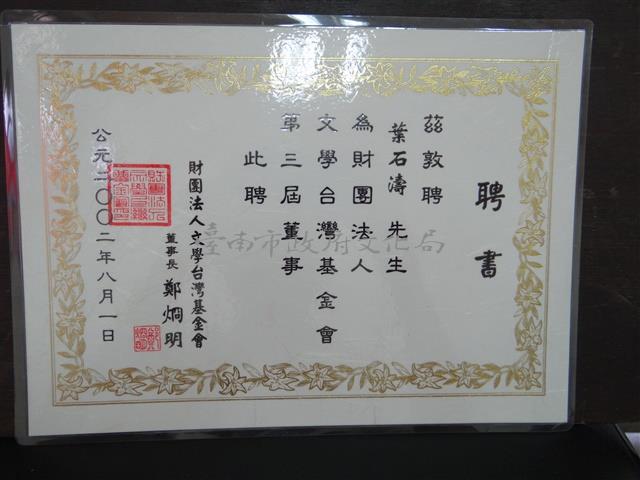 聘書
茲敦聘
葉石濤 先生
為財團法人
文學台灣基金會
第三屆董事
此聘
財團法人文學台灣基金會
董事長 鄭烱明
公元二〇〇二年八月一日
臺南市政府文化局